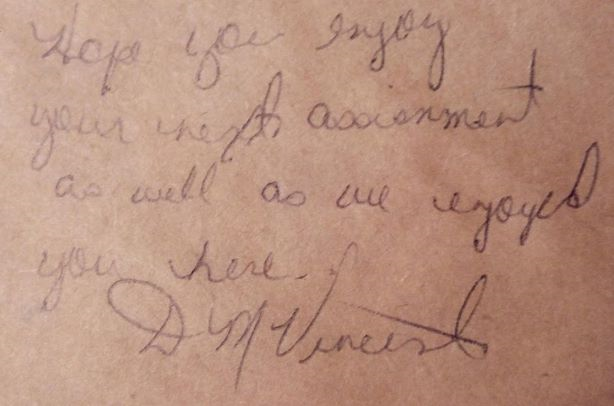 Hope you enjoy
your next assignment
as well as we enjoyed
you here.
D M Vincent